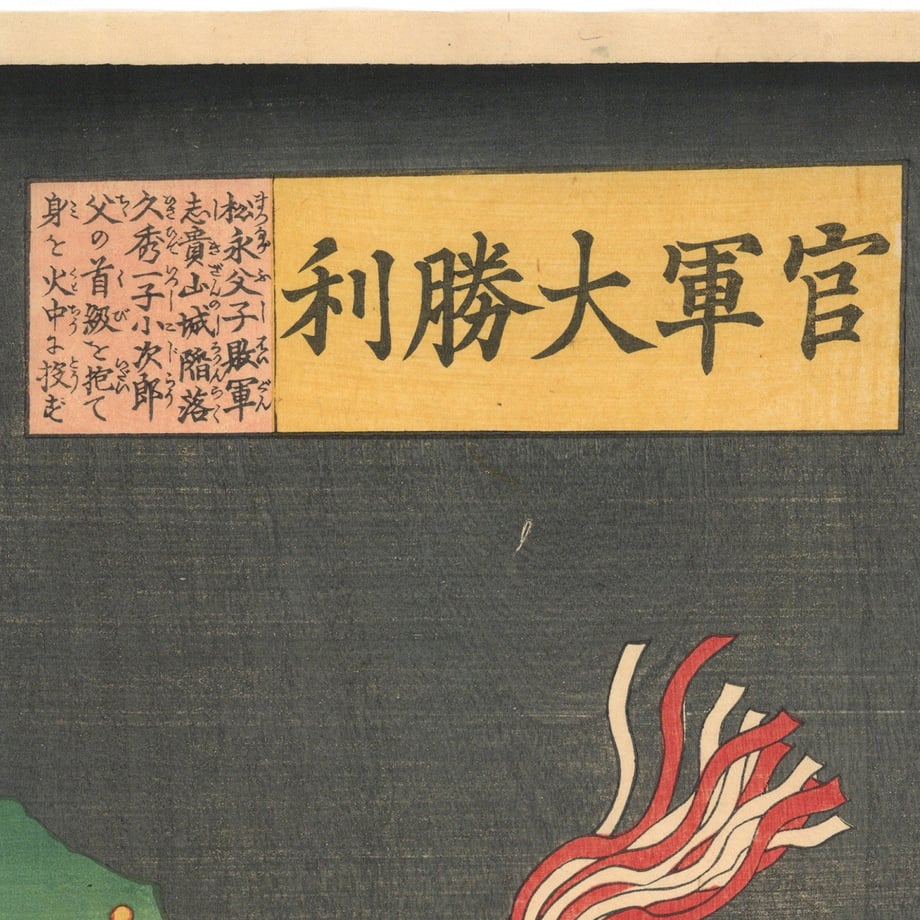 官軍大勝利
松永父子敗軍
志貴山城陥落
久秀一子小次郎
父の首級を抱て
身を火中に投ず